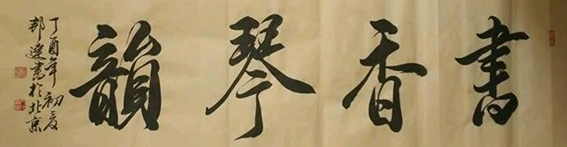 書香琴韻
丁酉年初夏
邦達書於北京